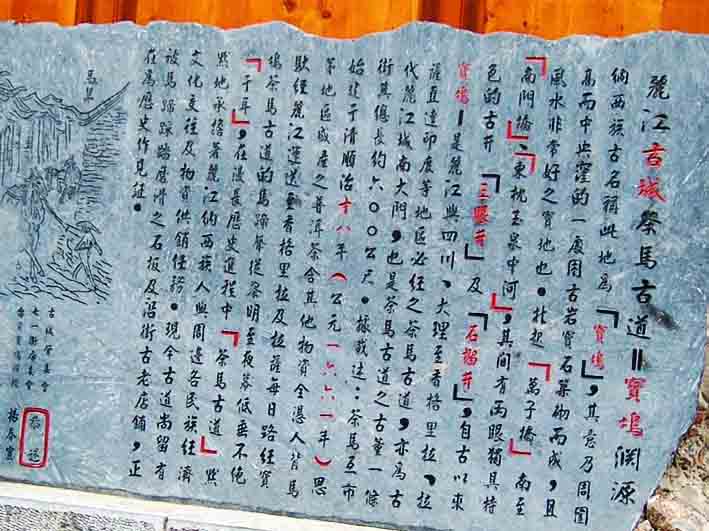 麗江古城茶馬古道‖寶塢淵源
納西族古名稱此地為「寶塢」,其意乃周圍
高而中央窪的一處周古岩寶石築砌而成,且
風水非常好之寶地也。北起「萬子橋」南至
「南門橋」、東枕玉泉中河,其間有兩眼獨具特
色的古井「三眼井」及「石榴井」,自古以來
寶塢‖是麗江與四川、大理至香格里拉、拉
薩直達印度等地區必經之茶馬古道,亦為古
代麗江城南大門,也是茶馬古道之古董一條
街其總長約六〇〇公尺。據載述:茶馬互市
始建于清順治十八年(公元一六六一年)思
茅地區盛產之普洱茶含其他物資全憑人背馬
馱經麗江運送至香格里拉及拉薩每日路經寶
塢茶馬古道的馬蹄聲從黎明至夜幕低垂不絕
「于耳」,在漫長歷史進程中「茶馬古道」默
默地承擔著麗江納西族人與周邊各民族經濟
文化交往及物資供銷任務。現今古道尚留有
被馬蹄踩踏磨滑之石板及沿街古老店鋪,正
在為歷史作見証。
古城管委會
七一街居委會